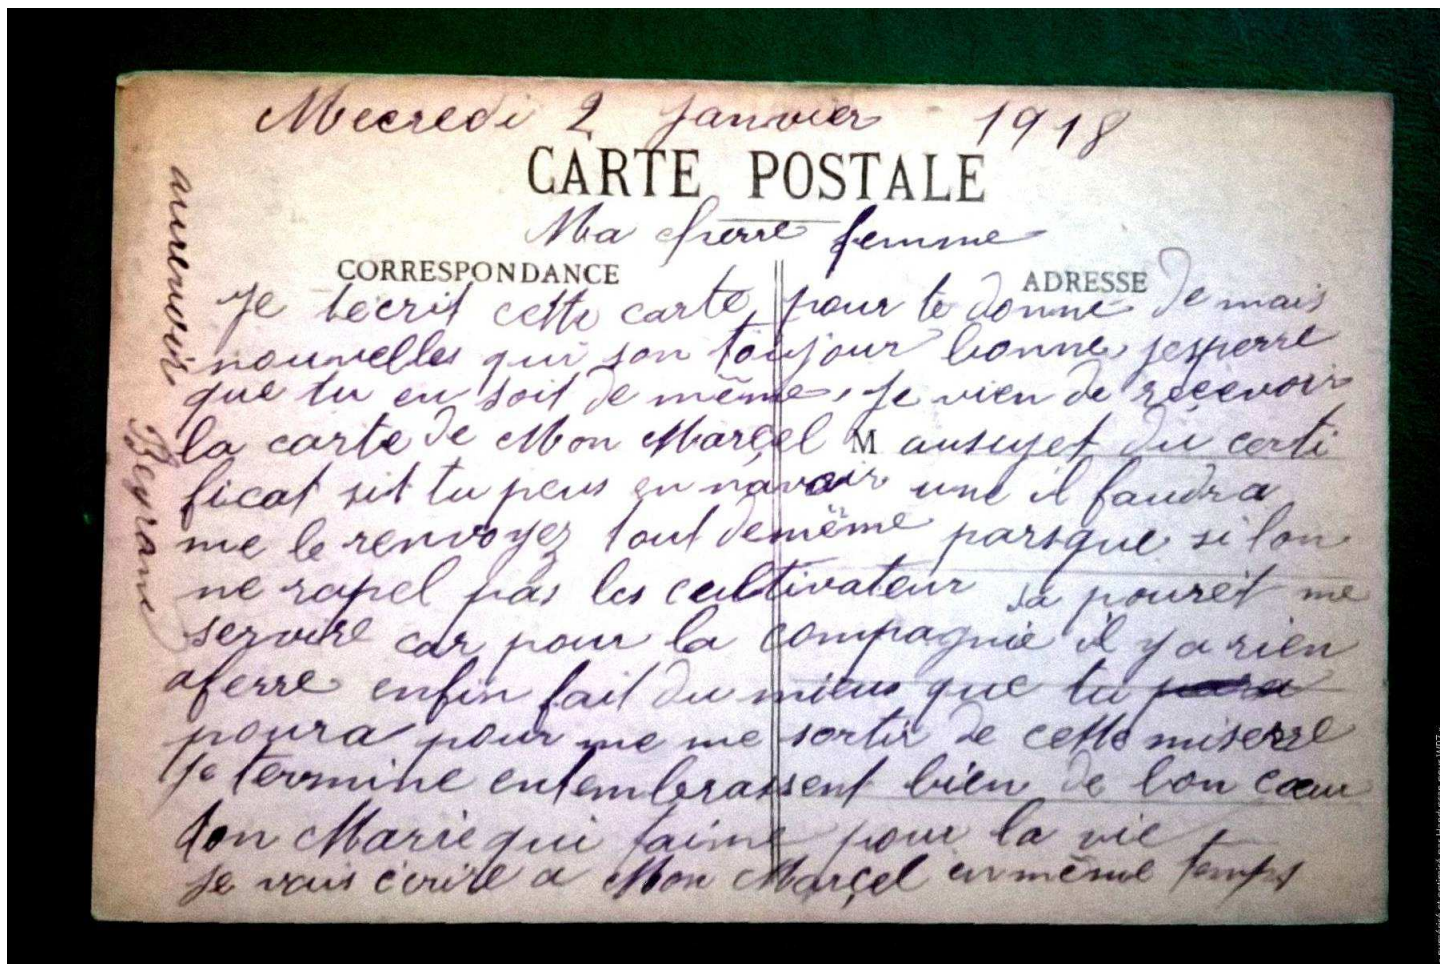 Mecredi 2 Janvier 1918
CARTE POSTALE
Ma cherre femme
CORRESPONDANCE
ADRESSE
Je tecrit cette carte pour te donné de mais
nouvelles qui son toujour bonne, jesperre
que tu en soit de même, Je vien de reçevoir
la carte de Mon Marçel M ausujet du certi
ficat sit tu peus en navoir une il faudra
me le renvoyez tout demême parsque si lon
ne rapel pas les cultivateur sa pouret me
servire car pour la compagnie il y a rien
aferre enfin fait du mieus que tu
poura pour me me sortir de cette miserre
Je termine entembrassent bien de bon cœur
ton Marie qui taime pour la vie
Je vais écrire a Mon Marçel en même temps
aurevoir